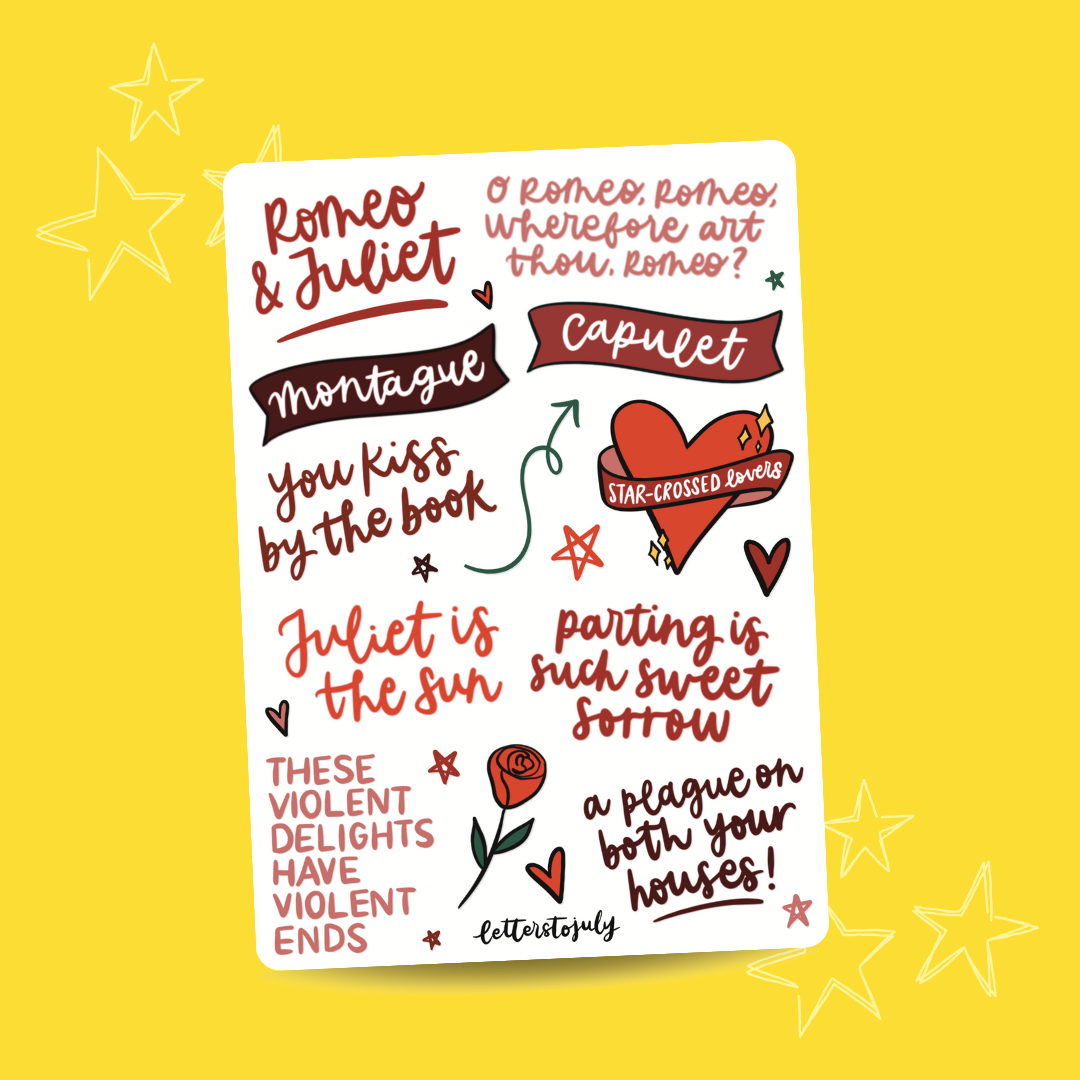 Romeo
& Juliet
O Romeo, Romeo,
wherefore art
thou, Romeo?
montague
Capulet
you kiss
by the book
STAR-CROSSED lovers
Juliet is
the sun
parting is
such sweet
sorrow
THESE
VIOLENT
DELIGHTS
HAVE
VIOLENT
ENDS
a plague on
both your
houses!
letterstojuly